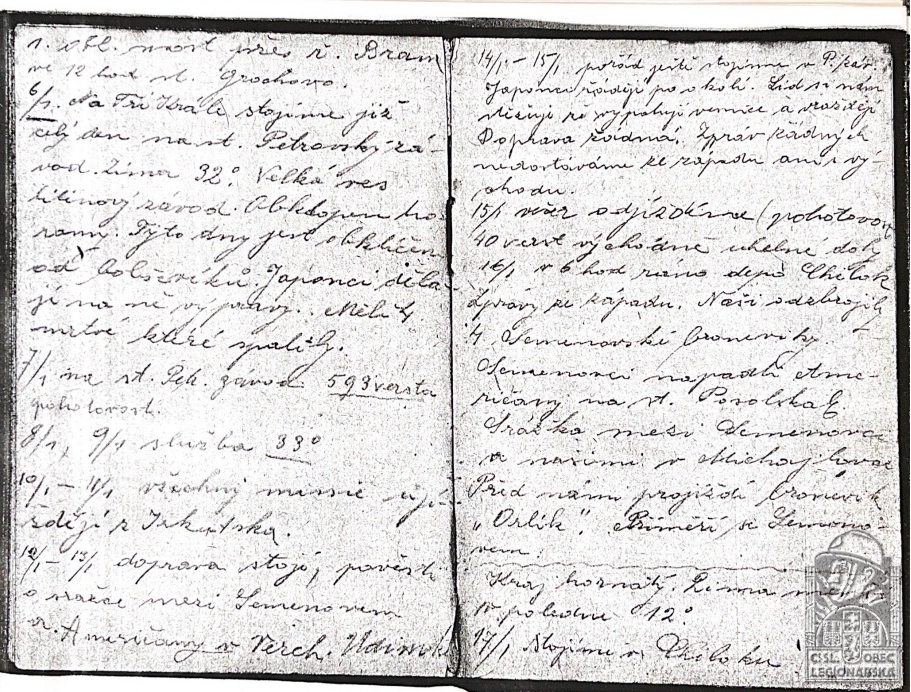 1. obl. most přes ř. Bram
ve 12 hod st. Grochovo.
6/1. Na Tři Krále stojíme již
celý den na st. Petrovský zá-
vod. Zima 32°. Velká ves
litinový závod. Obklopen ho-
rami. Tyto dny jest obklíčen
od bolševíků. Japonci děla-
jí na ně výpravy. Měli 4
mrtvé které spálily.
7/1 na st. Petr. závod 593 versta
pohotovost.
8/1, 9/1 služba 33°
10/1 - 11/1 všechny missie ujíž-
ždějí z Irkutska.
12/1 - 13/1 doprava stojí, pověsti
o srážce mezi Semenovem
a Američany v Verch. Udinsk
14/1 - 15/1 pořád ještě stojíme v P. záv.
Japonci řádějí po okolí. Lid si nám
stěžuje že vypalují vesnice a vraždějí
Doprava žádná. Zpráv žádných
nedostáváme ze západu ani vý-
chodu.
15/1 večer odjíždíme (pohotovost
40 verst východně uhelné doly
16/1 v 6 hod ráno depo Chilok
Zprávy ze západu. Naši odzbrojily
4 Semenovské broneviky.
Semenovci napadli Ame-
ričany na st. Posolskaë.
Srážka mezi Semenovci
a našimi v Michajlovce
Před námi projíždí bronevik
„Orlik“. Příměří se Semeno-
vem.
Kraj hornatý. Zima
v poledne 12°
17/1 Stojíme v Chiloku
ČSL. OBEC
LEGIONÁŘSKÁ